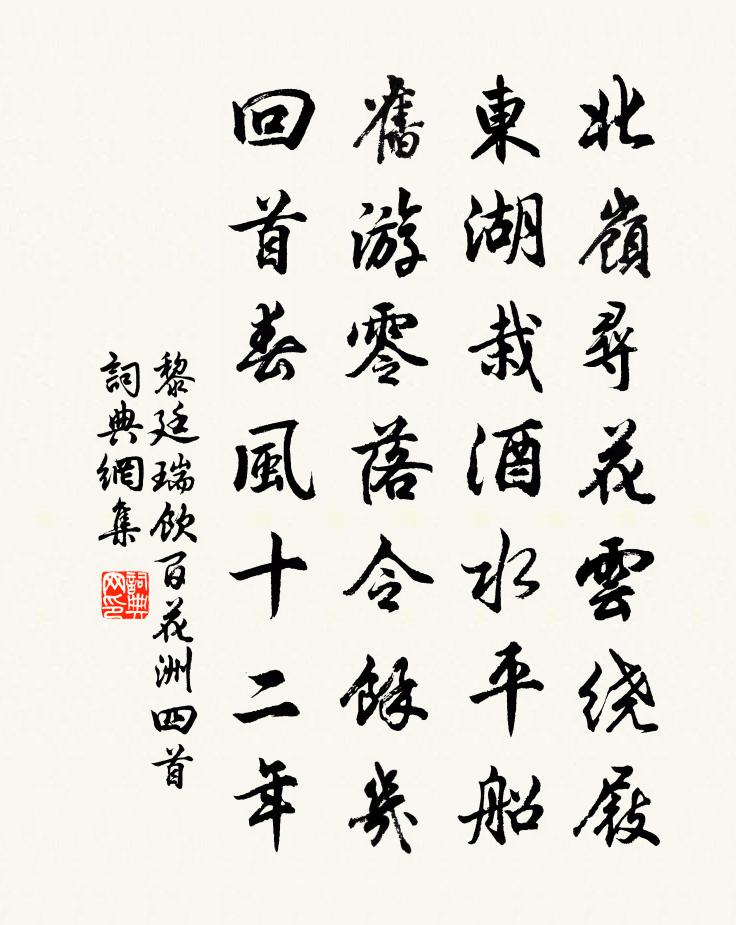 北嶺尋花雲绕屐
東湖載酒水平船
舊游零落今餘幾
回首春風十二年
黎廷瑞飲百花洲四首
詞典網集
詞典网印